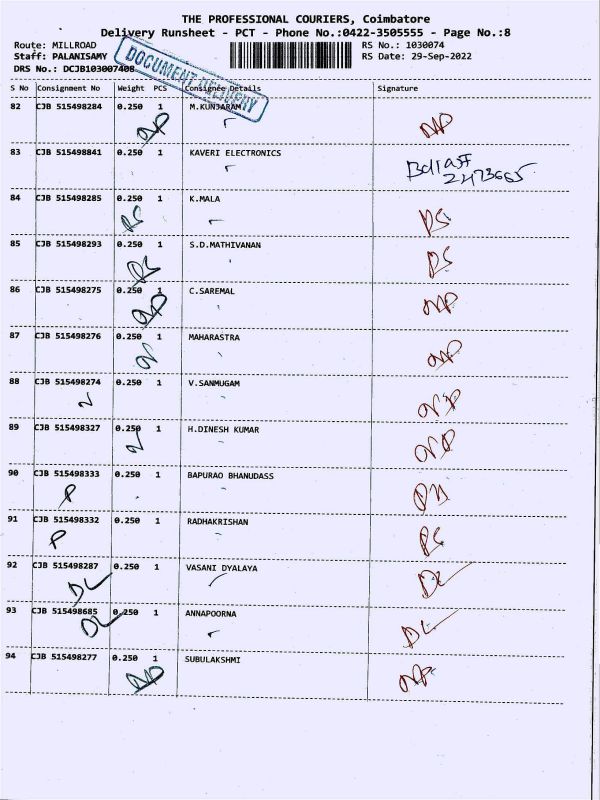 THE PROFESSIONAL COURIERS, Coimbatore
Delivery Runsheet - PCT - Phone No.:0422-3505555 - Page No.:8
Route: MILLROAD
RS No.: 1030074
Staff: PALANISAMY
RS Date: 29-Sep-2022
DRS No.: DCJB103007408
DOCUMENT DELIVERY
S No Consignment No Weight PCS Consignee Details Signature
82 CJB 515498284 0.250 1 M.KUNJARAM
83 CJB 515498841 0.250 1 KAVERI ELECTRONICS
84 CJB 515498285 0.250 1 K.MALA
RS
RS
85 CJB 515498293 0.250 1 S.D.MATHIVANAN
RS
RS
86 CJB 515498275 0.250 1 C.SAREMAL
87 CJB 515498276 0.250 1 MAHARASTRA
88 CJB 515498274 0.250 1 V.SANMUGAM
89 CJB 515498327 0.250 1 H.DINESH KUMAR
90 CJB 515498333 0.250 1 BAPURAO BHANUDASS
P
91 CJB 515498332 0.250 1 RADHAKRISHAN
P
92 CJB 515498287 0.250 1 VASANI DYALAYA
DL
DL
93 CJB 515498685 0.250 1 ANNAPOORNA
DL
DL
94 CJB 515498277 0.250 1 SUBULAKSHMI